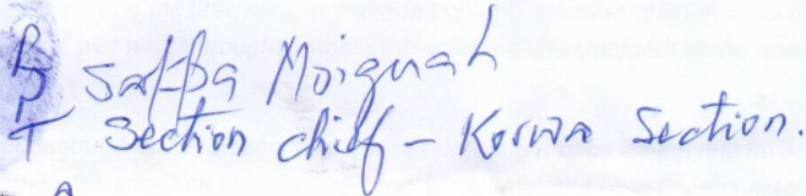 Saffa Moiguah
Section chief - Korwa Section.